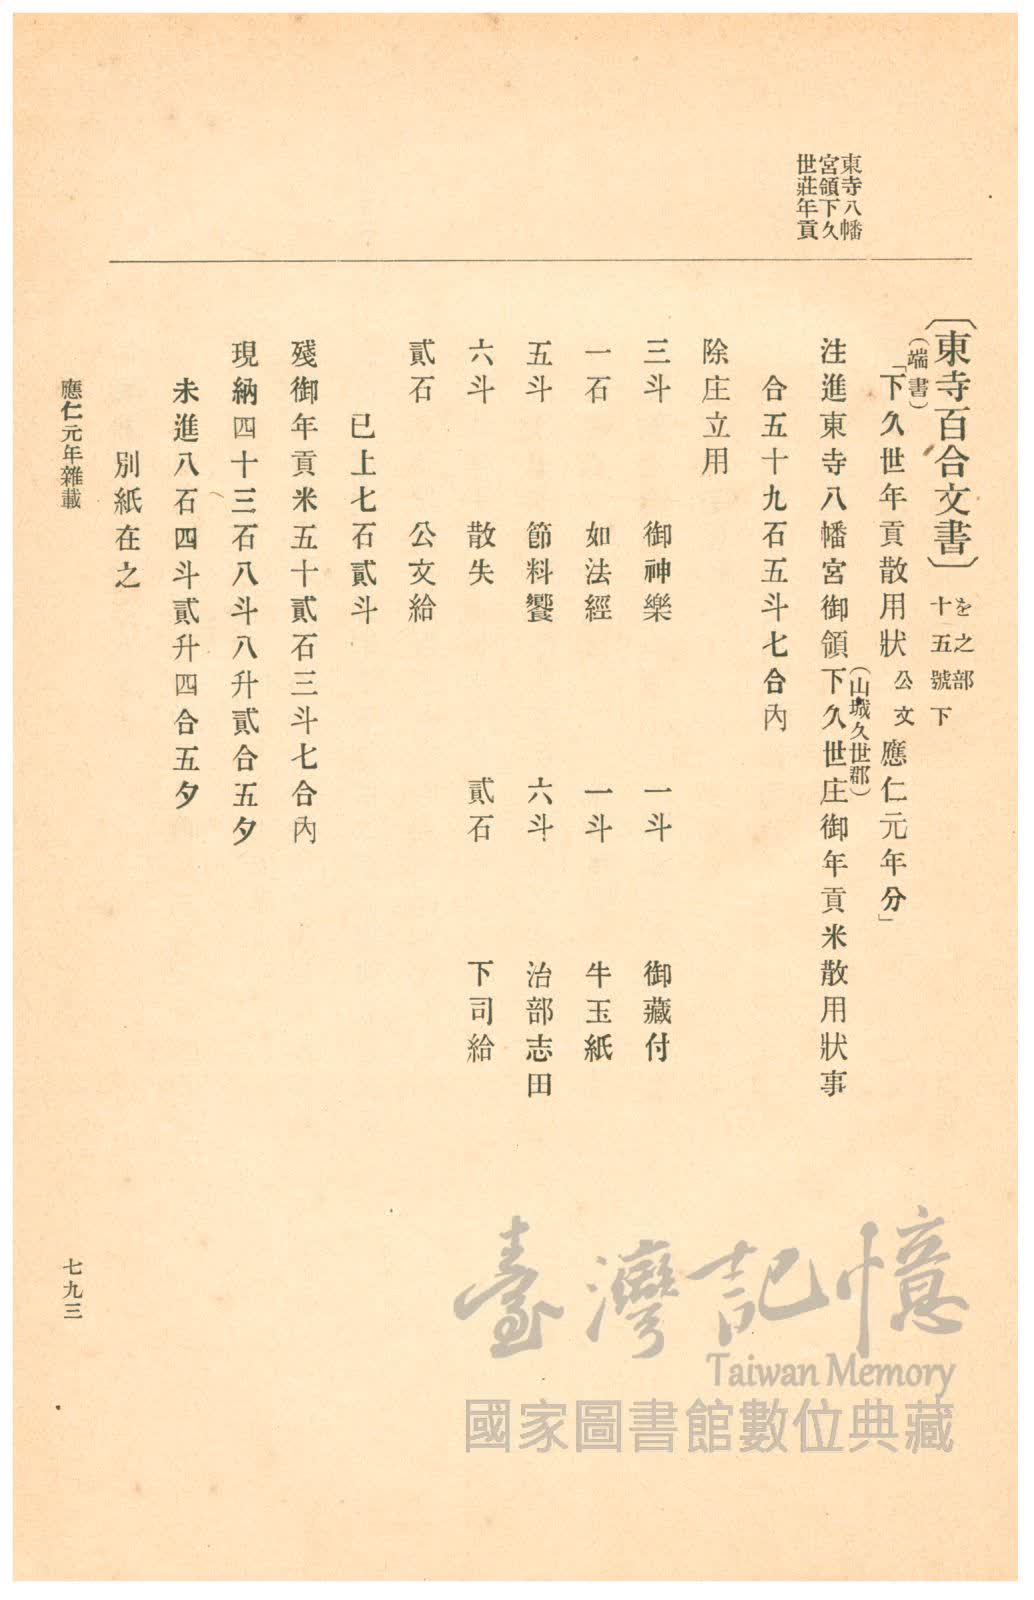 東寺八幡
宮領下久
世莊年貢
〔東寺百合文書〕 を之部
十五號下
(端書)
「下久世年貢散用狀 公文 應仁元年分」
(山城久世郡)
注進東寺八幡宮御領下久世庄御年貢米散用狀事
合五十九石五斗七合內
除庄立用
三斗 御神樂 一斗 御藏付
一石 如法經 一斗 牛玉紙
五斗 節料饗 六斗 治部志田
六斗 散失 貳石 下司給
貳石 公文給
已上七石貳斗
殘御年貢米五十貳石三斗七合內
現納四十三石八斗八升貳合五夕
未進八石四斗貳升四合五夕
別紙在之
應仁元年雜載
七九三
臺灣記憶
Taiwan Memory
國家圖書館數位典藏